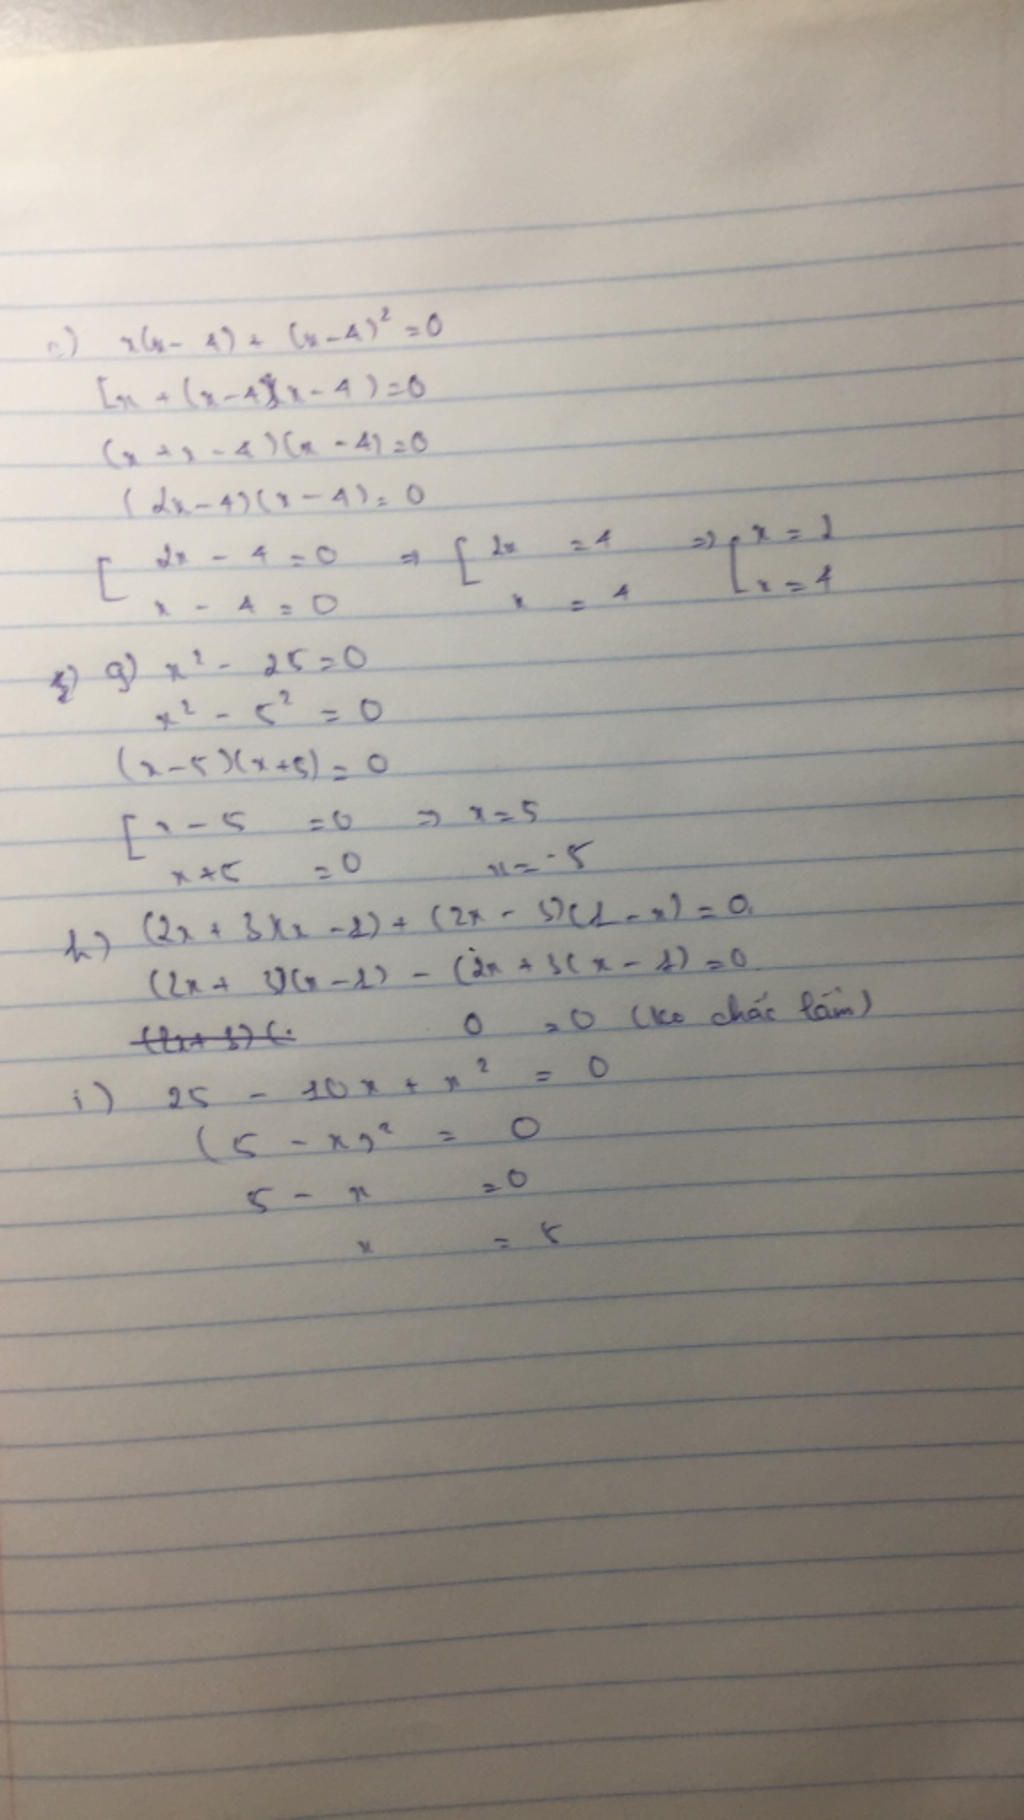 x(x - 4) + (x - 4)² = 0
[x + (x - 4)](x - 4) = 0
(x + x - 4)(x - 4) = 0
(2x - 4)(x - 4) = 0
[ 2x - 4 = 0 ⇒ [ 2x = 4 ⇒ [ x = 2
x - 4 = 0 x = 4 x = 4
g) x² - 25 = 0
x² - 5² = 0
(x - 5)(x + 5) = 0
[ x - 5 = 0 ⇒ x = 5
x + 5 = 0 x = -5
h) (2x + 3)(x - 1) + (2x - 3)(1 - x) = 0
(2x + 3)(x - 1) - (2x + 3(x - 1) = 0
0 = 0 (ko chắc lắm)
i) 25 - 10x + x² = 0
(5 - x)² = 0
5 - x = 0
x = 5